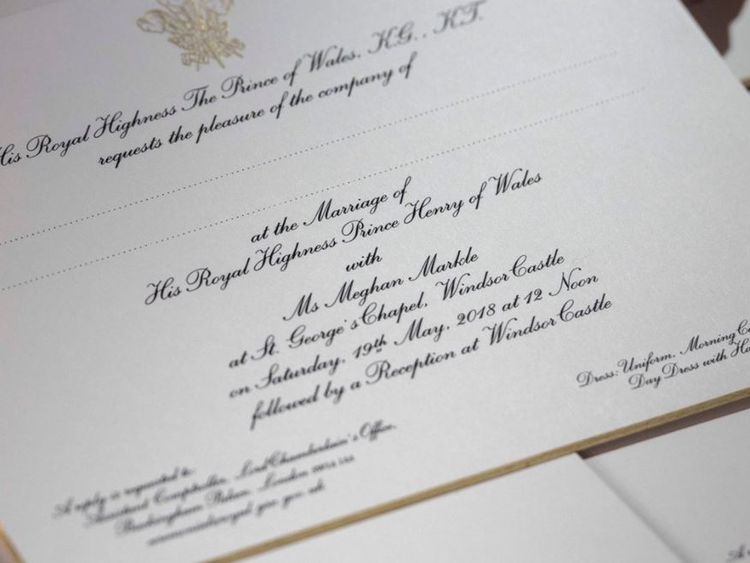 His Royal Highness The Prince of Wales, K.G., K.T.
requests the pleasure of the company of
at the Marriage of
His Royal Highness Prince Henry of Wales
with
Ms Meghan Markle
at St. George's Chapel, Windsor Castle
on Saturday, 19th May, 2018 at 12 Noon
followed by a Reception at Windsor Castle
Dress: Uniform, Morning
Day Dress with
A reply is requested to:
Comptroller, Lord Chamberlain's Office,
Buckingham Palace, London